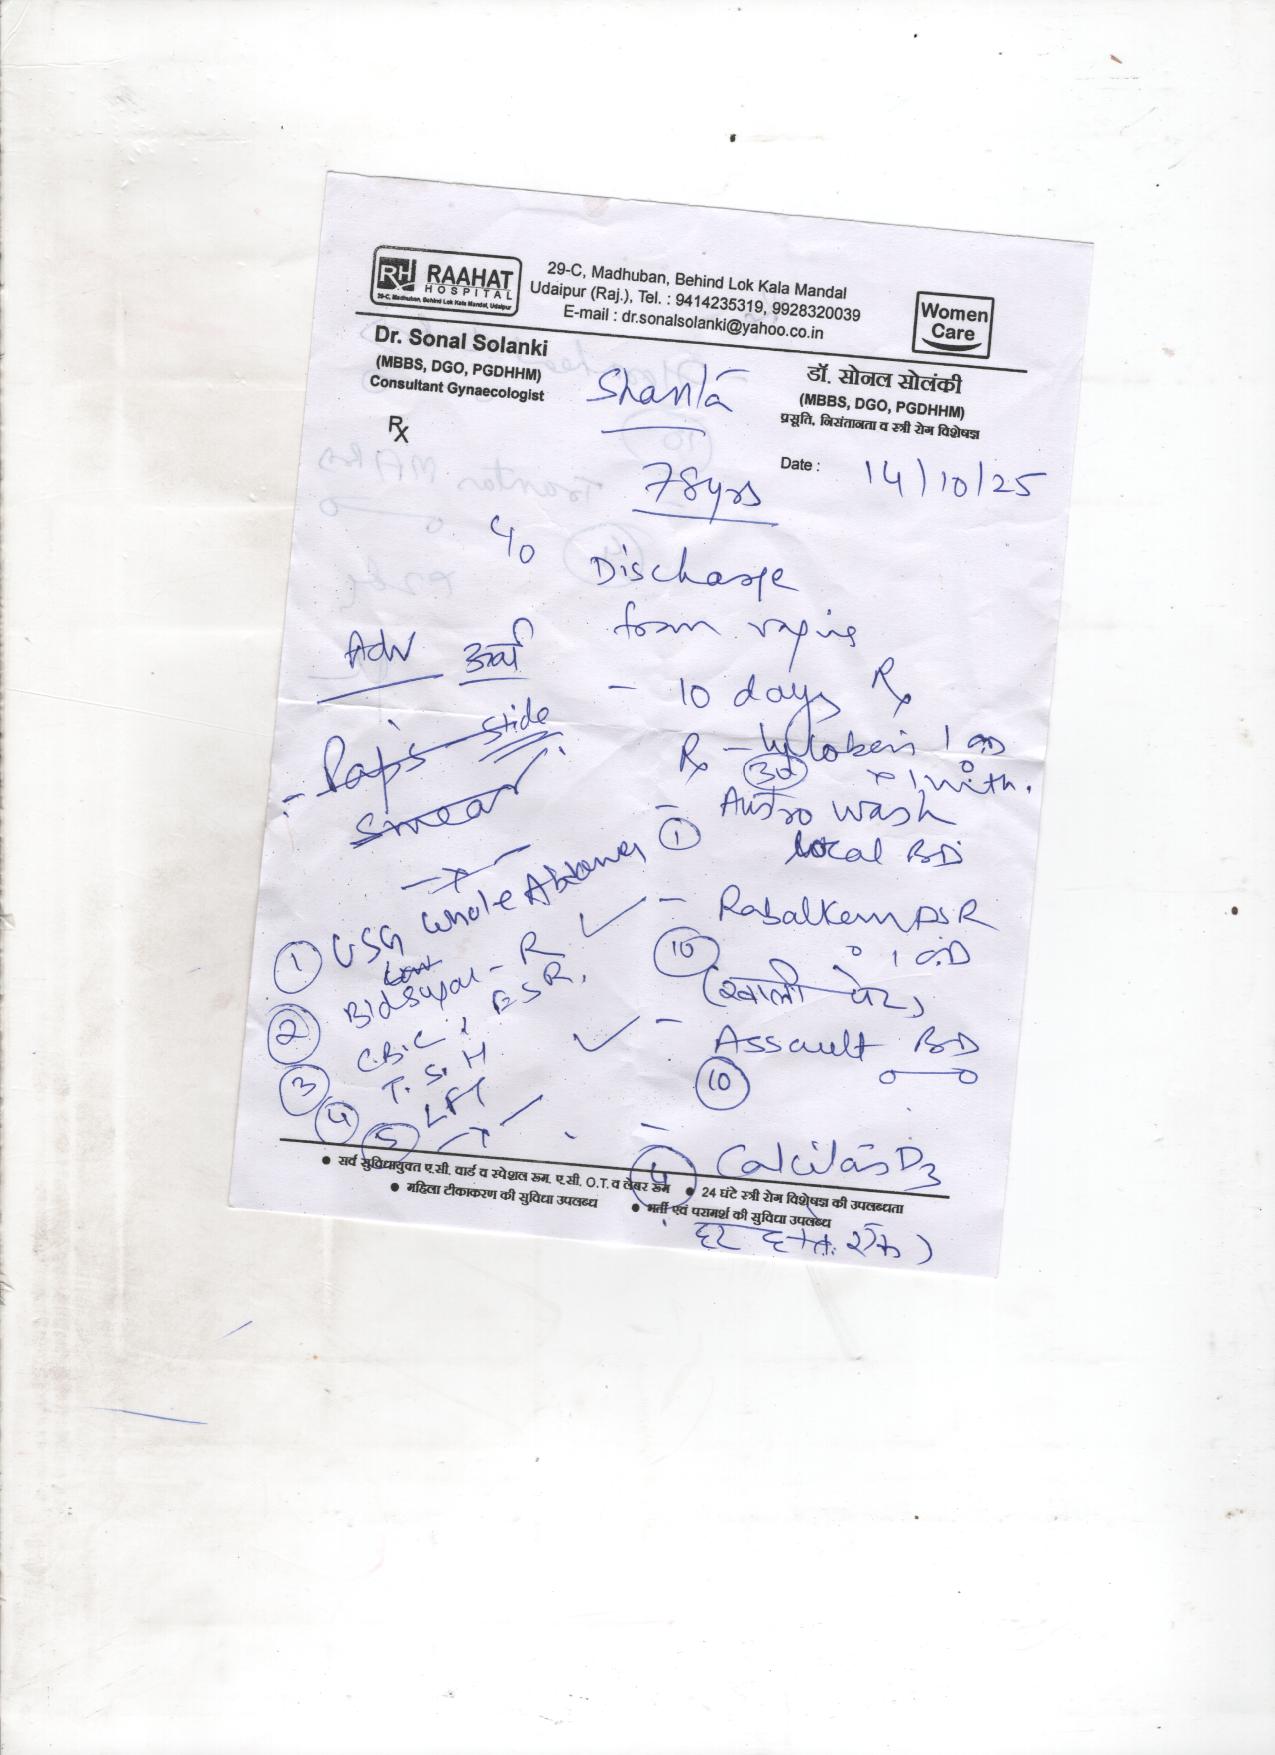 RH RAAHAT
HOSPITAL
29-C, Madhuban, Behind Lok Kala Mandal, Udaipur
29-C, Madhuban, Behind Lok Kala Mandal
Udaipur (Raj.), Tel. : 9414235319, 9928320039
E-mail : dr.sonalsolanki@yahoo.co.in
Women
Care
Dr. Sonal Solanki
(MBBS, DGO, PGDHHM)
Consultant Gynaecologist
डॉ. सोनल सोलंकी
(MBBS, DGO, PGDHHM)
प्रसूति, निसंतानता व स्त्री रोग विशेषज्ञ
Shanta
Rx
Date : 14/10/25
78yrs
c/o Discharge
from
- 10 days Rx
Adv
- Pap's slide
smear
Rx - 1 OD
30 x 1 mth.
- Austro wash
1 local BD
- Rabalkem DSR
10 1 OD
(खाली पेट)
- Assault BD
10
- Calcitas D3
4
1 USG Whole Abdomen
2 Bld sugar - R
3 C.B.C, ESR.
4 T.S.H
5 LFT
● सर्व सुविधायुक्त ए.सी. वार्ड व स्पेशल रूम, ए.सी. O.T. व लेबर रूम ● 24 घंटे स्त्री रोग विशेषज्ञ की उपलब्धता
● महिला टीकाकरण की सुविधा उपलब्ध ● भर्ती एवं परामर्श की सुविधा उपलब्ध